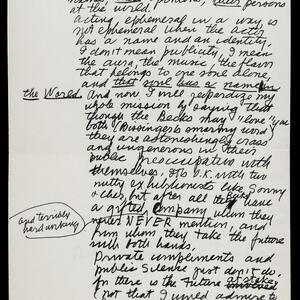 persons
at the world.
acting ephemeral in a way is
not ephemeral when the actor
has a name and an identity
I don't mean publicity, I mean
the aura, the music, the flavor
that belongs to one soul alone,
and that soul has a name in
the World. And now I will jeopardize my
whole mission by saying that
though the Becks may "love" you
both (Dissinger's smarmy word)
they are astonishingly crass
and ungenerous in their
public preoccupation with
themselves. It's O.K. with two
nutty exhibitionists like Sonny
& Cher, but after all the Becks have
a gifted company whom they
NEVER mention, and
from whom they take the future
with both hands.
and terribly
hard working
Private compliments and
public silence just don't do,
for there is the Future at stake,
not that I would admire to